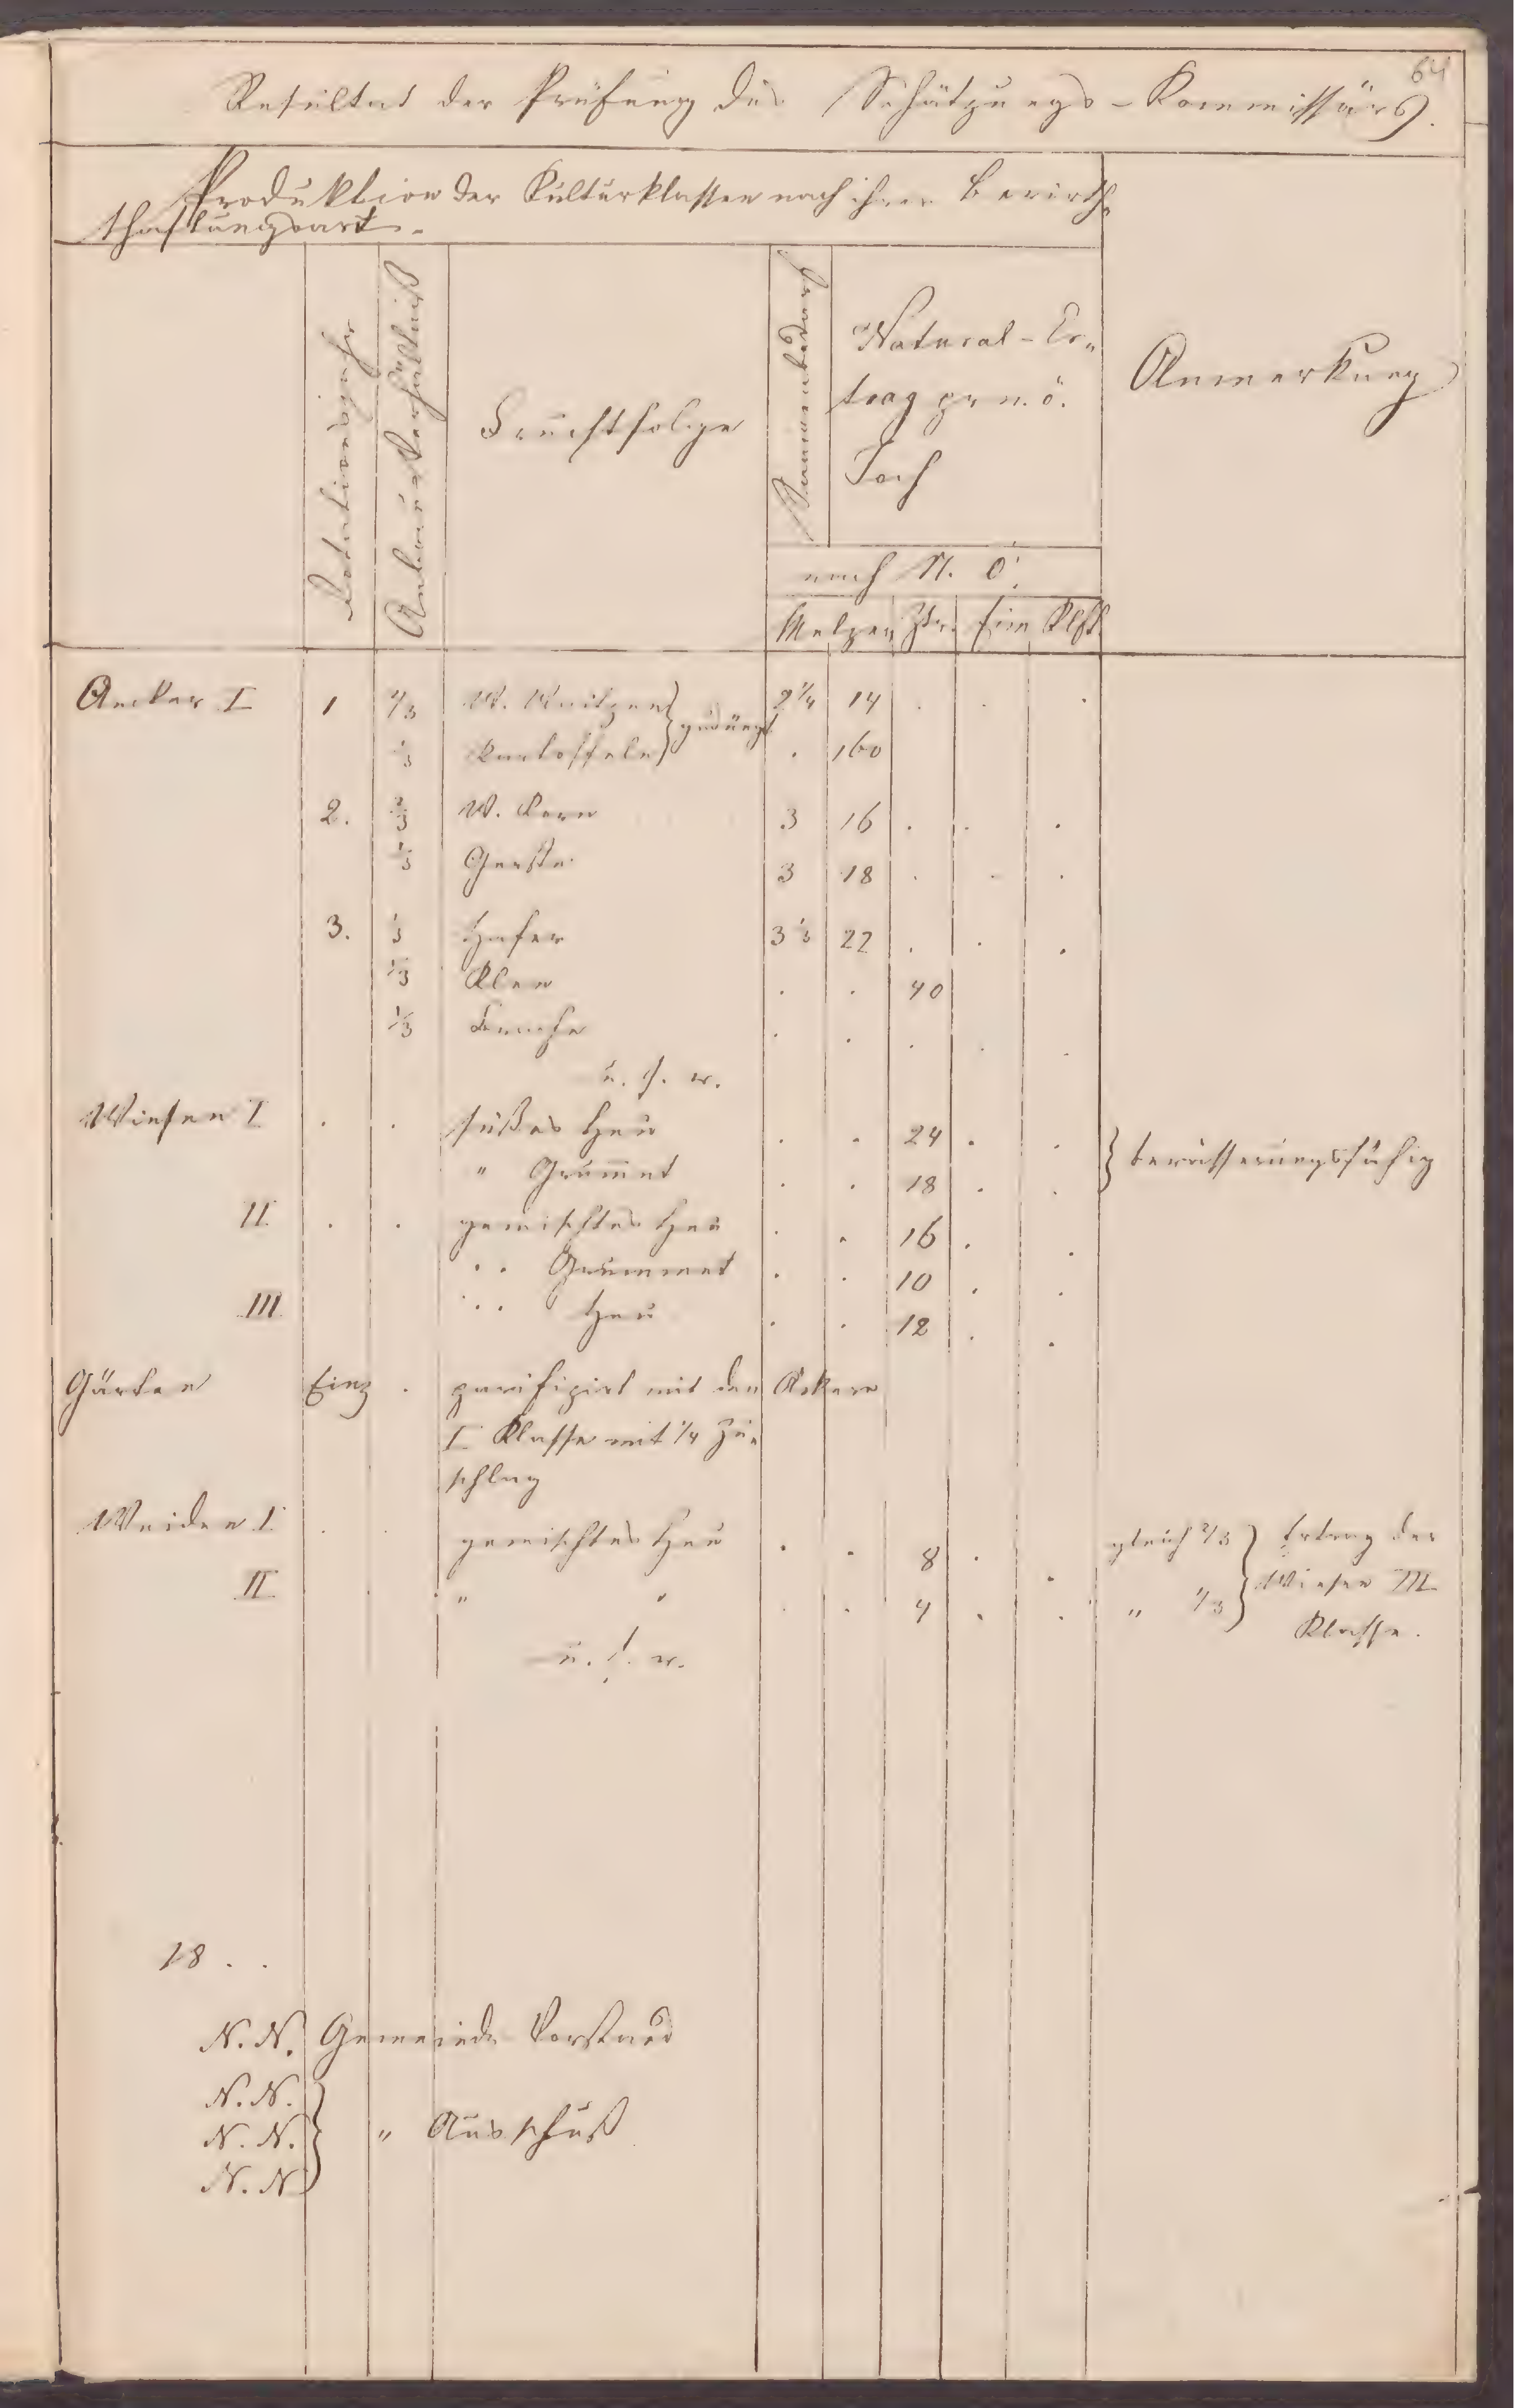 64
Resultat der Prüfung des Schätzungs-Kommissärs.
Produktion der Kulturklassen nach ihrer Bewirth-
schaftungsart.
Rotationsjahr
Anbau-Verhältniß
Fruchtfolge
Samenbedarf
Natural-Er-
trag pr n. ö.
Joch
Anmerkung
nach N. Ö.
Metzen Ztr. Eim Klft.
Aecker I 1 W. Weitzen } gedüngt 2 1/4 14 . . .
1/3 Kartoffeln . 160
2. 2/3 W. Korn 3 16 . . .
1/3 Gerste 3 18 . . .
3. 1/3 Hafer 3 1/3 22 . . .
1/3 Klee . . 40
1/3 Brache . . . . .
u. s. w.
Wiesen I . . süßes Heu . . 24 . . } bewässerungsfähig
" Grum̄et . . 18 . .
II . . gemischtes Heu . . 16 . .
" Grummet . . 10 . .
III " Heu . . 12 . .
Gärten Einz . parifizirt mit den Äckern
I Klasse mit 1/4 Zu-
schlag
Weiden I . . gemischtes Heu . . 8 . . gleich 2/3 } Ertrag der
II . . " " . . 4 . . " 1/3 } Wiesen III
Klasse.
u. s. w.
18 . .
N. N. Gemeinde Vorstand
N. N.
N. N. } " Ausschuß
N. N